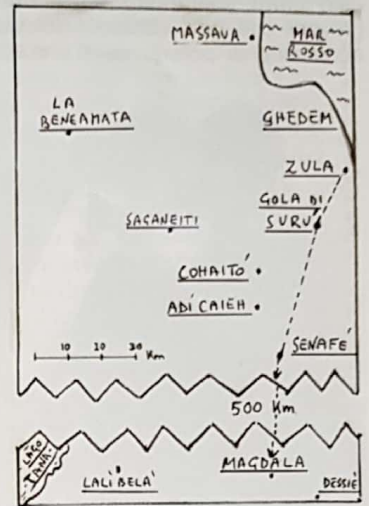 MASSAUA
MAR
ROSSO
LA
BENEAMATA
GHEDEM
ZULA
GOLA DI
SURU
SAGANEITI
COHAITÓ
ADÍ CAIEH
SENAFÉ
10 20 30 Km
500 Km
LAGO
TANA
LALIBELÁ
MAGDALA
DESSIÉ